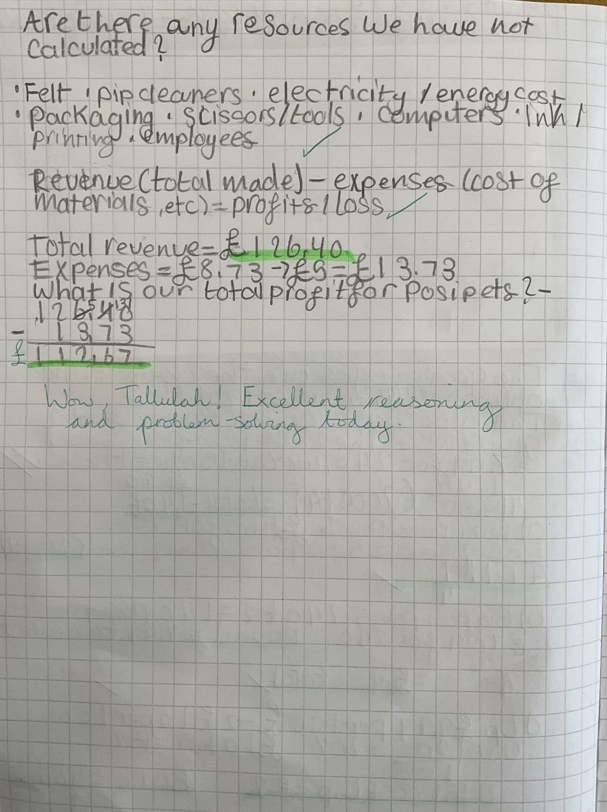 Are there any resources we have not
calculated?
• Felt • pipcleaners • electricity / energy cost
• Packaging • scissors/tools • computers • Ink /
printing • employees
Revenue (total made) – expenses (cost of
materials, etc) = profits / loss
Total revenue = £126.40
Expenses = £8.73 → £5 = £13.73
What is our total profit for Posipets? –
126.40
– 13.73
£112.67
Wow, Tallulah! Excellent reasoning
and problem-solving today.